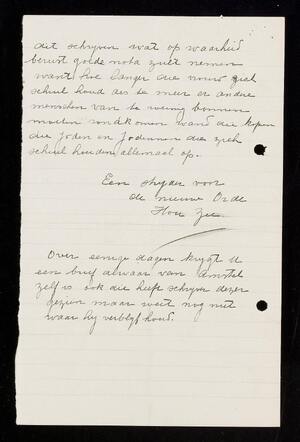 dit schryven wat op waarheid
berust goede nota zult nemen
want hoe langer die vrouw zich
schuil houd des te meer er andere
menschen van te weinig bonnen
moeten rondkomen want die kopen
die Joden en Jodinnen die zich
schuil houden allemaal op.
Een stryder voor
de nieuwe Orde
Hou Zee
Over eenige dagen krygt U
een brief alwaar van Amstel
zelf is ook die heeft schryver dezer
gezien maar weet nog niet
waar hy verblyf houd.